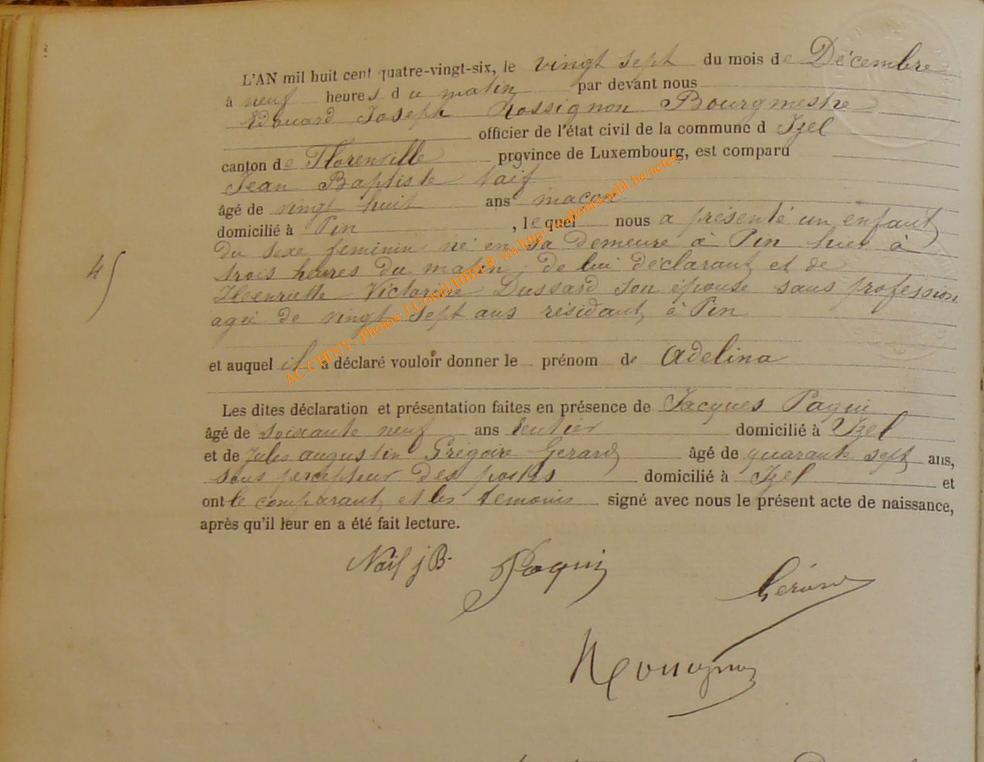 L'AN mil huit cent quatre-vingt-six, le vingt sept du mois de Décembre
à neuf heures du matin par devant nous
Edouard Joseph Rossignon Bourgmestre
officier de l'état civil de la commune d Izel
canton de Florenville province de Luxembourg, est comparu
Jean Baptiste Naif
âgé de vingt huit ans maçon
domicilié à Pin , lequel nous a présenté un enfant
du sexe feminin né en sa demeure à Pin hier à
45
trois heures du matin de lui déclarant et de
Henriette Victorine Dussard son épouse sans profession
agée de vingt sept ans résidant à Pin
et auquel il a déclaré vouloir donner le prénom de Adelina
Les dites déclaration et présentation faites en présence de Jacques Paquin
âgé de soixante neuf ans Rentier domicilié à Izel
et de Jules Augustin Grégoire Gerard âgé de quarante sept ans,
sous percepteur des postes domicilié à Izel et
ont le comparant et les temoins signé avec nous le présent acte de naissance,
après qu'il leur en a été fait lecture.
Naif j B.
Paquin
Gérard
Rossignon